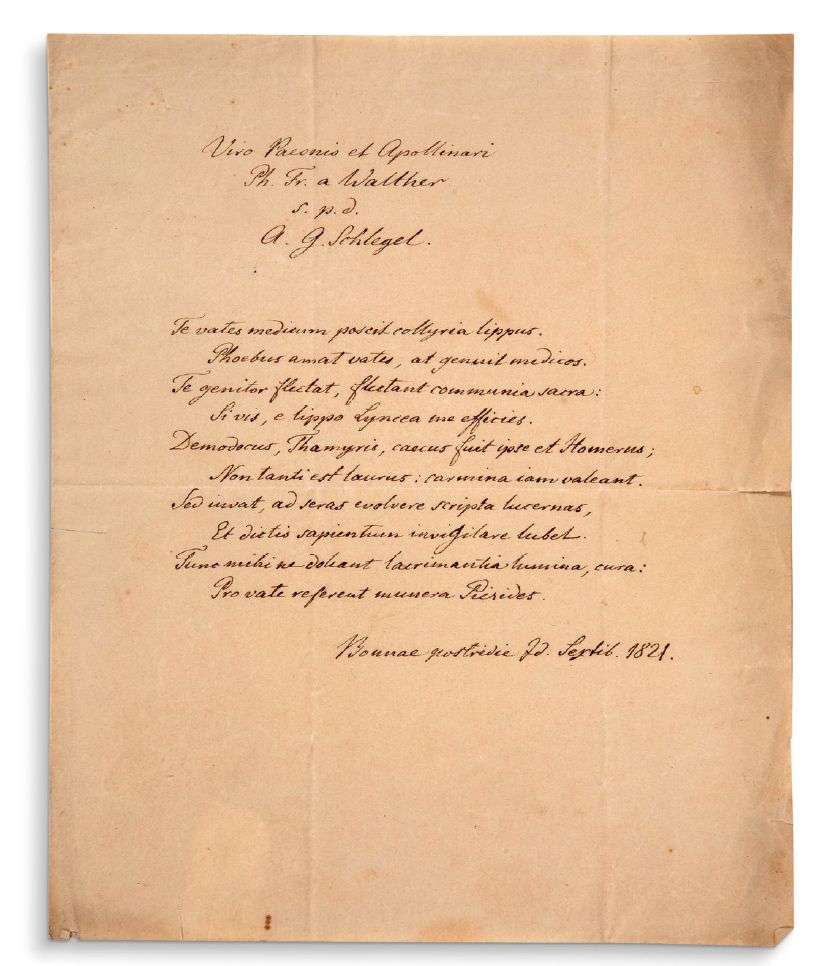 Viro Paeonis et Apollinari
Ph. Fr. a Walther
s. p. d.
A. G. Schlegel.
Te vates medicum poscit collyria lippus.
Phoebus amat vates, at genuit medicos.
Te genitor flectat, flectant communia sacra:
Si vis, e lippo Lyncea me efficies.
Demodocus, Thamyris, caecus fuit ipse et Homerus;
Non tanti est laurus: carmina iam valeant.
Sed iuvat, ad seras evolvere scripta lucernas,
Et dictis sapientum invigilare lubet.
Tunc mihi ne doleant lacrimantia lumina, cura:
Pro vate referent munera Pierides.
Bonnae postridie Id. Sextil. 1821.